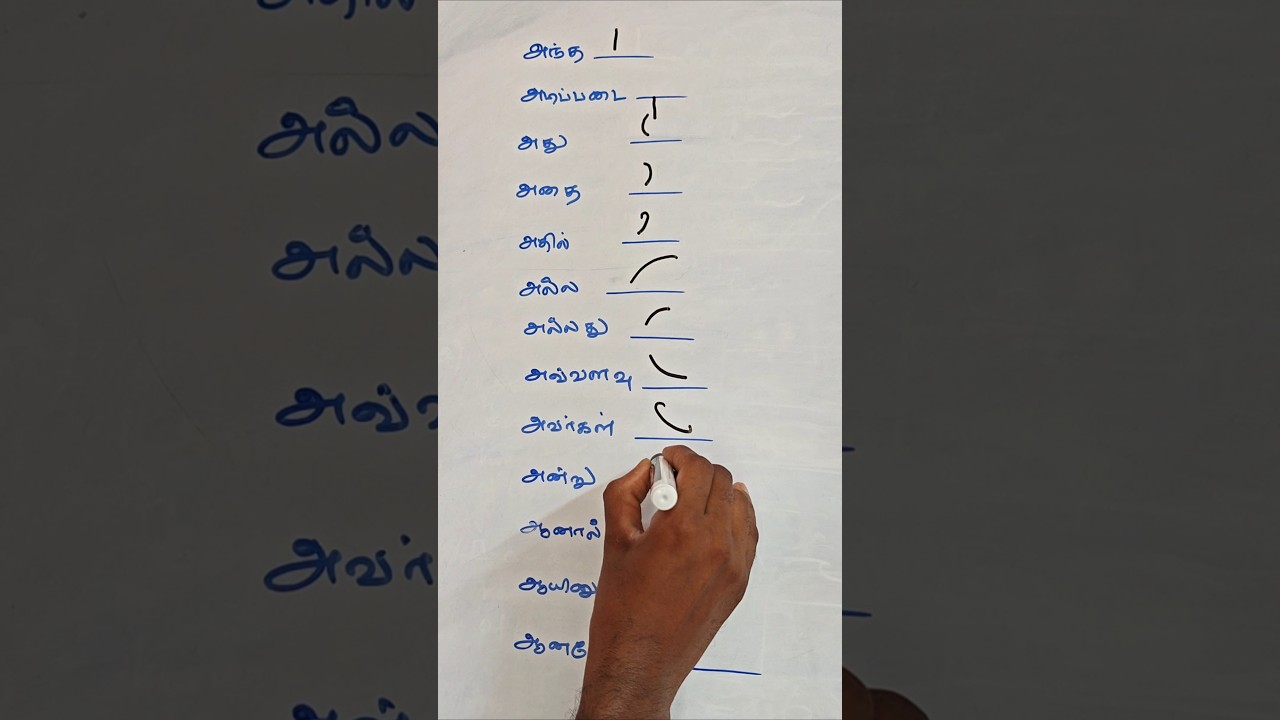 அந்த
அடிப்படை
அது
அதை
அதில்
அல்ல
அல்லது
அவ்வளவு
அவர்கள்
அன்று
ஆனால்